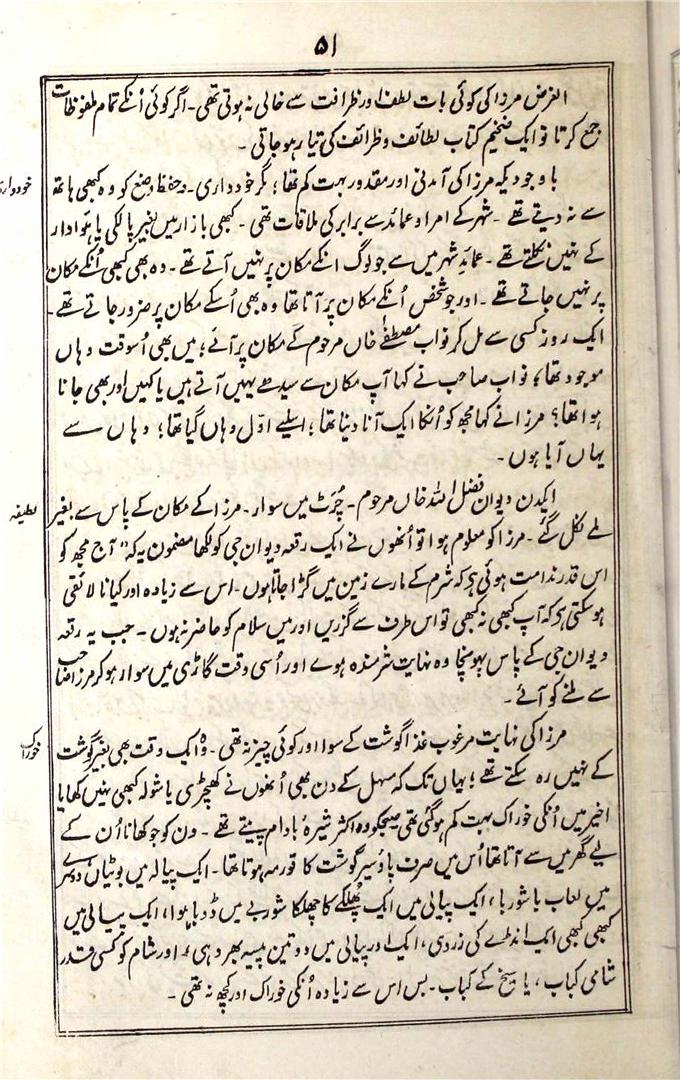 ۵۱
الغرض مرزا کی کوئی بات لطف اور ظرافت سے خالی نہ ہوتی تھی۔ اگر کوئی اُنکے تمام ملفوظات
جمع کرتا تو ایک ضخیم کتاب لطائف و ظرائف کی تیار ہوجاتی۔
خودداری
باوجودیکہ مرزا کی آمدنی اور مقدور بہت کم تھا؛ مگر خودداری۔ و حفظ وضع کو وہ کبھی ہاتھ
سے نہ دیتے تھے۔ شہر کے امرا و عمائد سے برابر کی ملاقات تھی۔ کبھی بازار میں بغیر پالکی یا ہوادار
کے نہیں نکلتے تھے۔ عمائد شہر میں سے جو لوگ انکے مکان پر نہیں آتے تھے۔ وہ بھی کبھی اُنکے مکان
پر نہیں جاتے تھے۔ اور جو شخص اُنکے مکان پر آتا تھا وہ بھی اُسکے مکان پر ضرور جاتے تھے۔
ایک روز کسی سے مل کر نواب مصطفےٰ خاں مرحوم کے مکان پر آئے؛ میں بھی اُسوقت وہاں
موجود تھا؛ نواب صاحب نے کہا آپ مکان سے سیدھے یہیں آتے ہیں یا کہیں اور بھی جانا
ہوا تھا؟ مرزا نے کہا مجھ کو اُنکا ایک آنا دینا تھا؛ اسلیے اوّل وہاں گیا تھا؛ وہاں سے
یہاں آیا ہوں۔
لطیفہ
ایکدن دیوان فضل اللہ خاں مرحوم۔ چُرَٹ میں سوار۔ مرزا کے مکان کے پاس سے بغیر
ملے نکل گئے۔ مرزا کو معلوم ہوا تو اُنھوں نے ایک رقعہ دیوان جی کو لکھا مضمون یہ کہ "آج مجھ کو
اس قدر ندامت ہوئی ہی کہ شرم کے مارے زمین میں گڑا جاتا ہوں۔ اس سے زیادہ اور کیا نالائقی
ہوسکتی ہی کہ آپ کبھی نہ کبھی تو اس طرف سے گزریں اور میں سلام کو حاضر نہ ہوں۔ جب یہ رقعہ
دیوان جی کے پاس پہونچا وہ نہایت شرمندہ ہوے اور اُسی وقت گاڑی میں سوار ہوکر مرزا صاحب
سے ملنے کو آئے۔
خوراک
مرزا کی نہایت مرغوب غذا گوشت کے سوا اور کوئی چیز نہ تھی۔ وہ ایک وقت بھی بغیر گوشت
کے نہیں رہ سکتے تھے؛ یہاں تک کہ مسہل کے دن بھی اُنھوں نے کھچڑی یا شولہ کبھی نہیں کھایا
اخیر میں اُنکی خوراک بہت کم ہوگئی تھی صبحکو وہ اکثر شیرۂ بادام پیتے تھے۔ دن کو جو کھانا اُن کے
لیے گھر میں سے آتا تھا اُس میں صرف پاؤ سیر گوشت کا قورمہ ہوتا تھا۔ ایک پیالہ میں بوٹیاں دوسرے
میں لعاب یا شوربا، ایک پیالی میں ایک پھُلکے کا چھلکا شوربے میں ڈوبا ہوا، ایک پیالی میں
کبھی کبھی ایک انڈے کی زردی، ایک اور پیالی میں دو تین پیسہ بھر دہی، اور شام کو کسی قدر
شامی کباب، یا سیخ کے کباب۔ بس اس سے زیادہ اُنکی خوراک اور کچھ نہ تھی۔